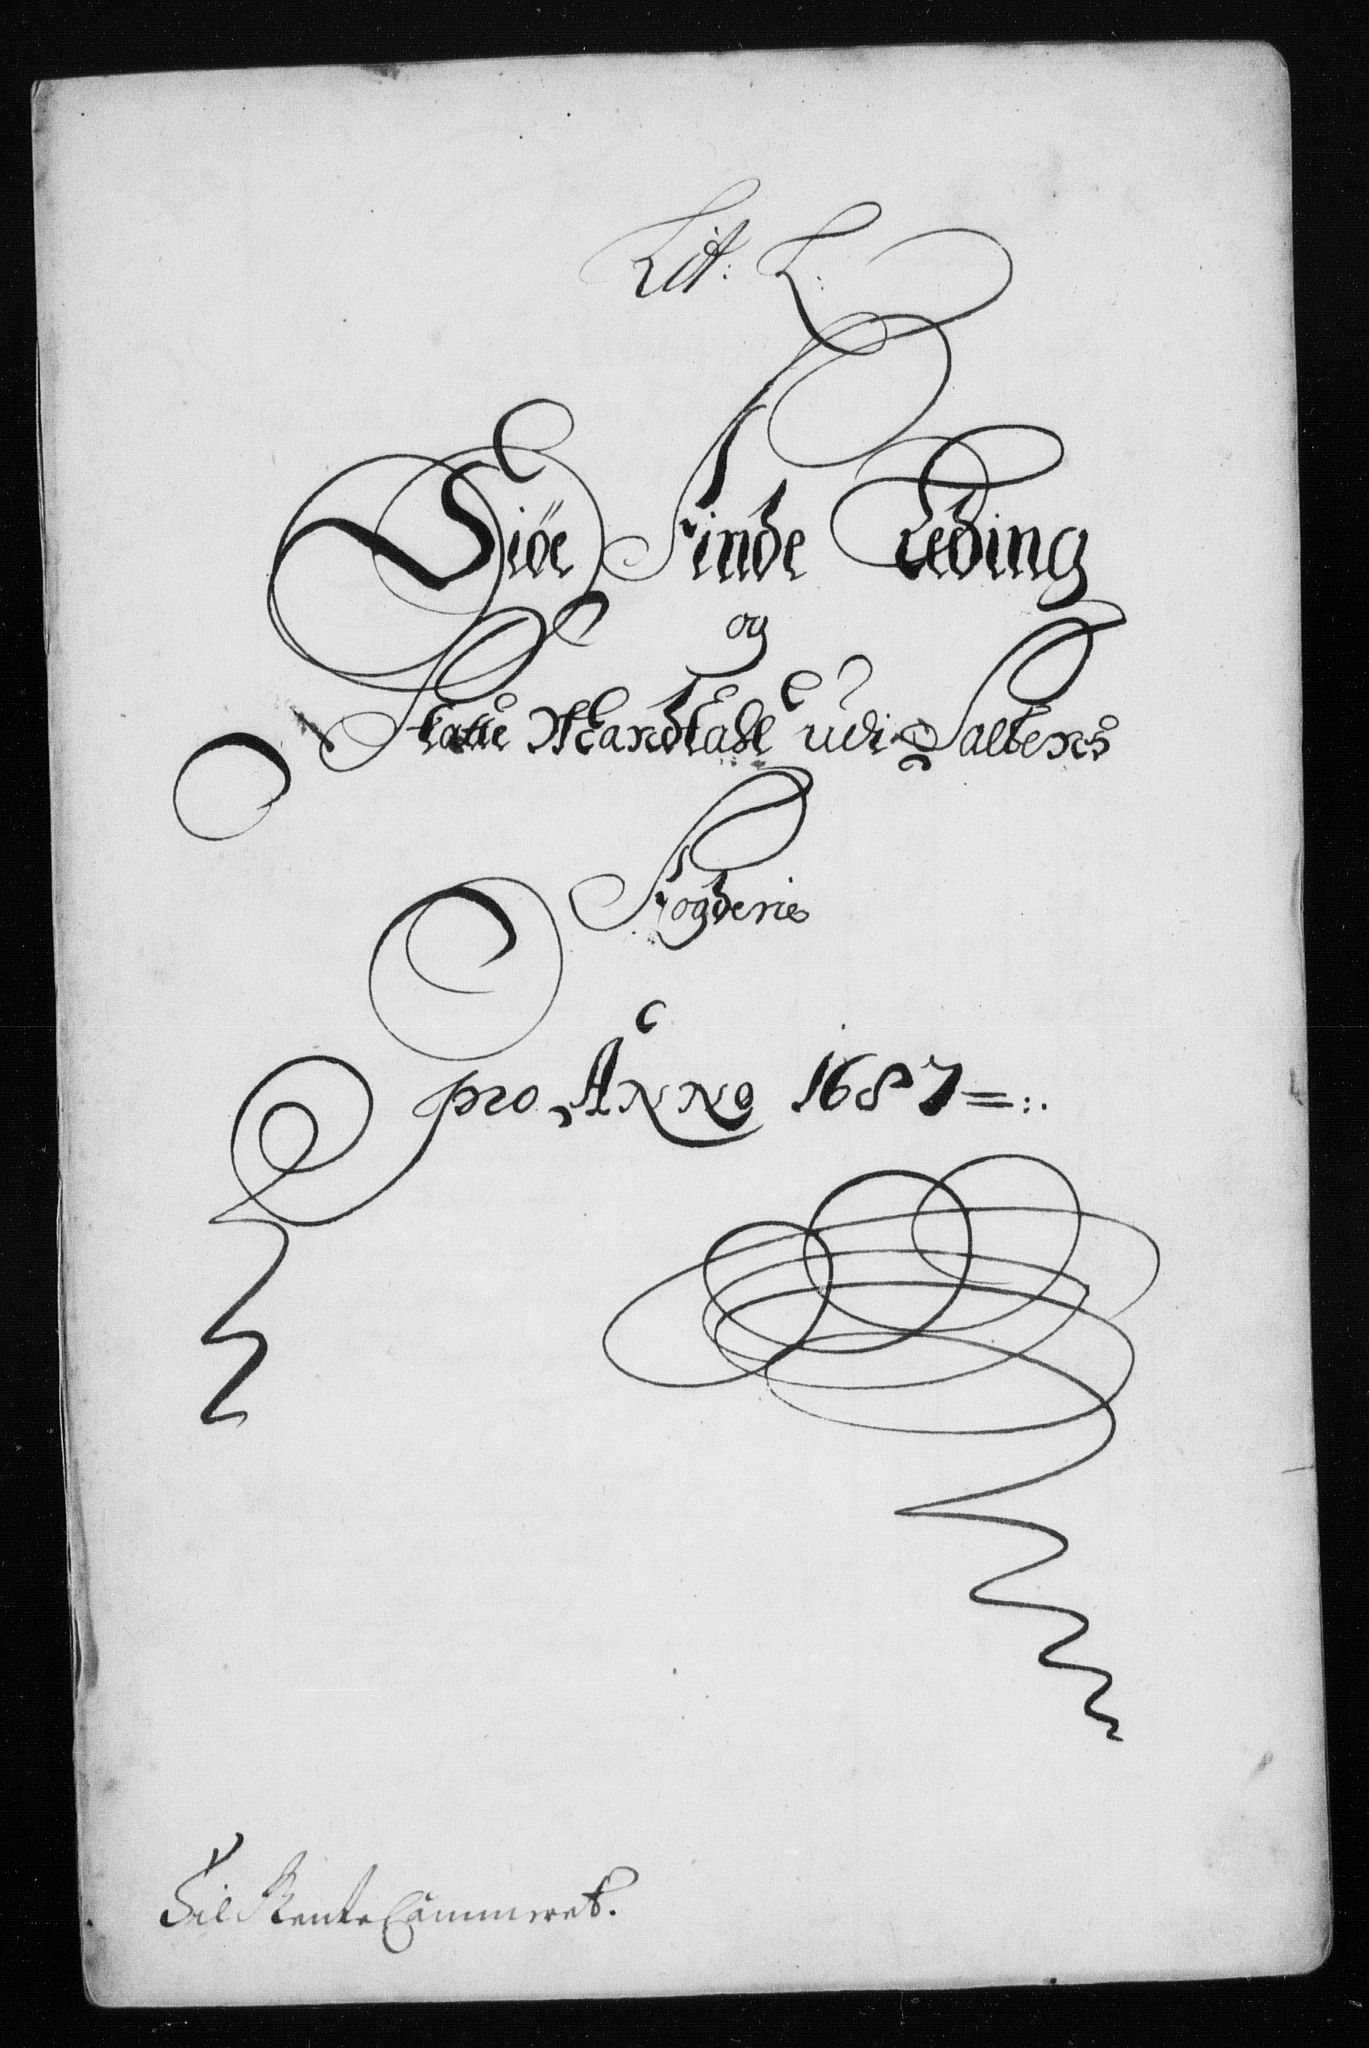 Lit: L:
Siöe Finde Leding
og
Skatte Mandtall udi Saltens
Fogderie
pro Anno 1687=:.
Til Rente Cammeret.